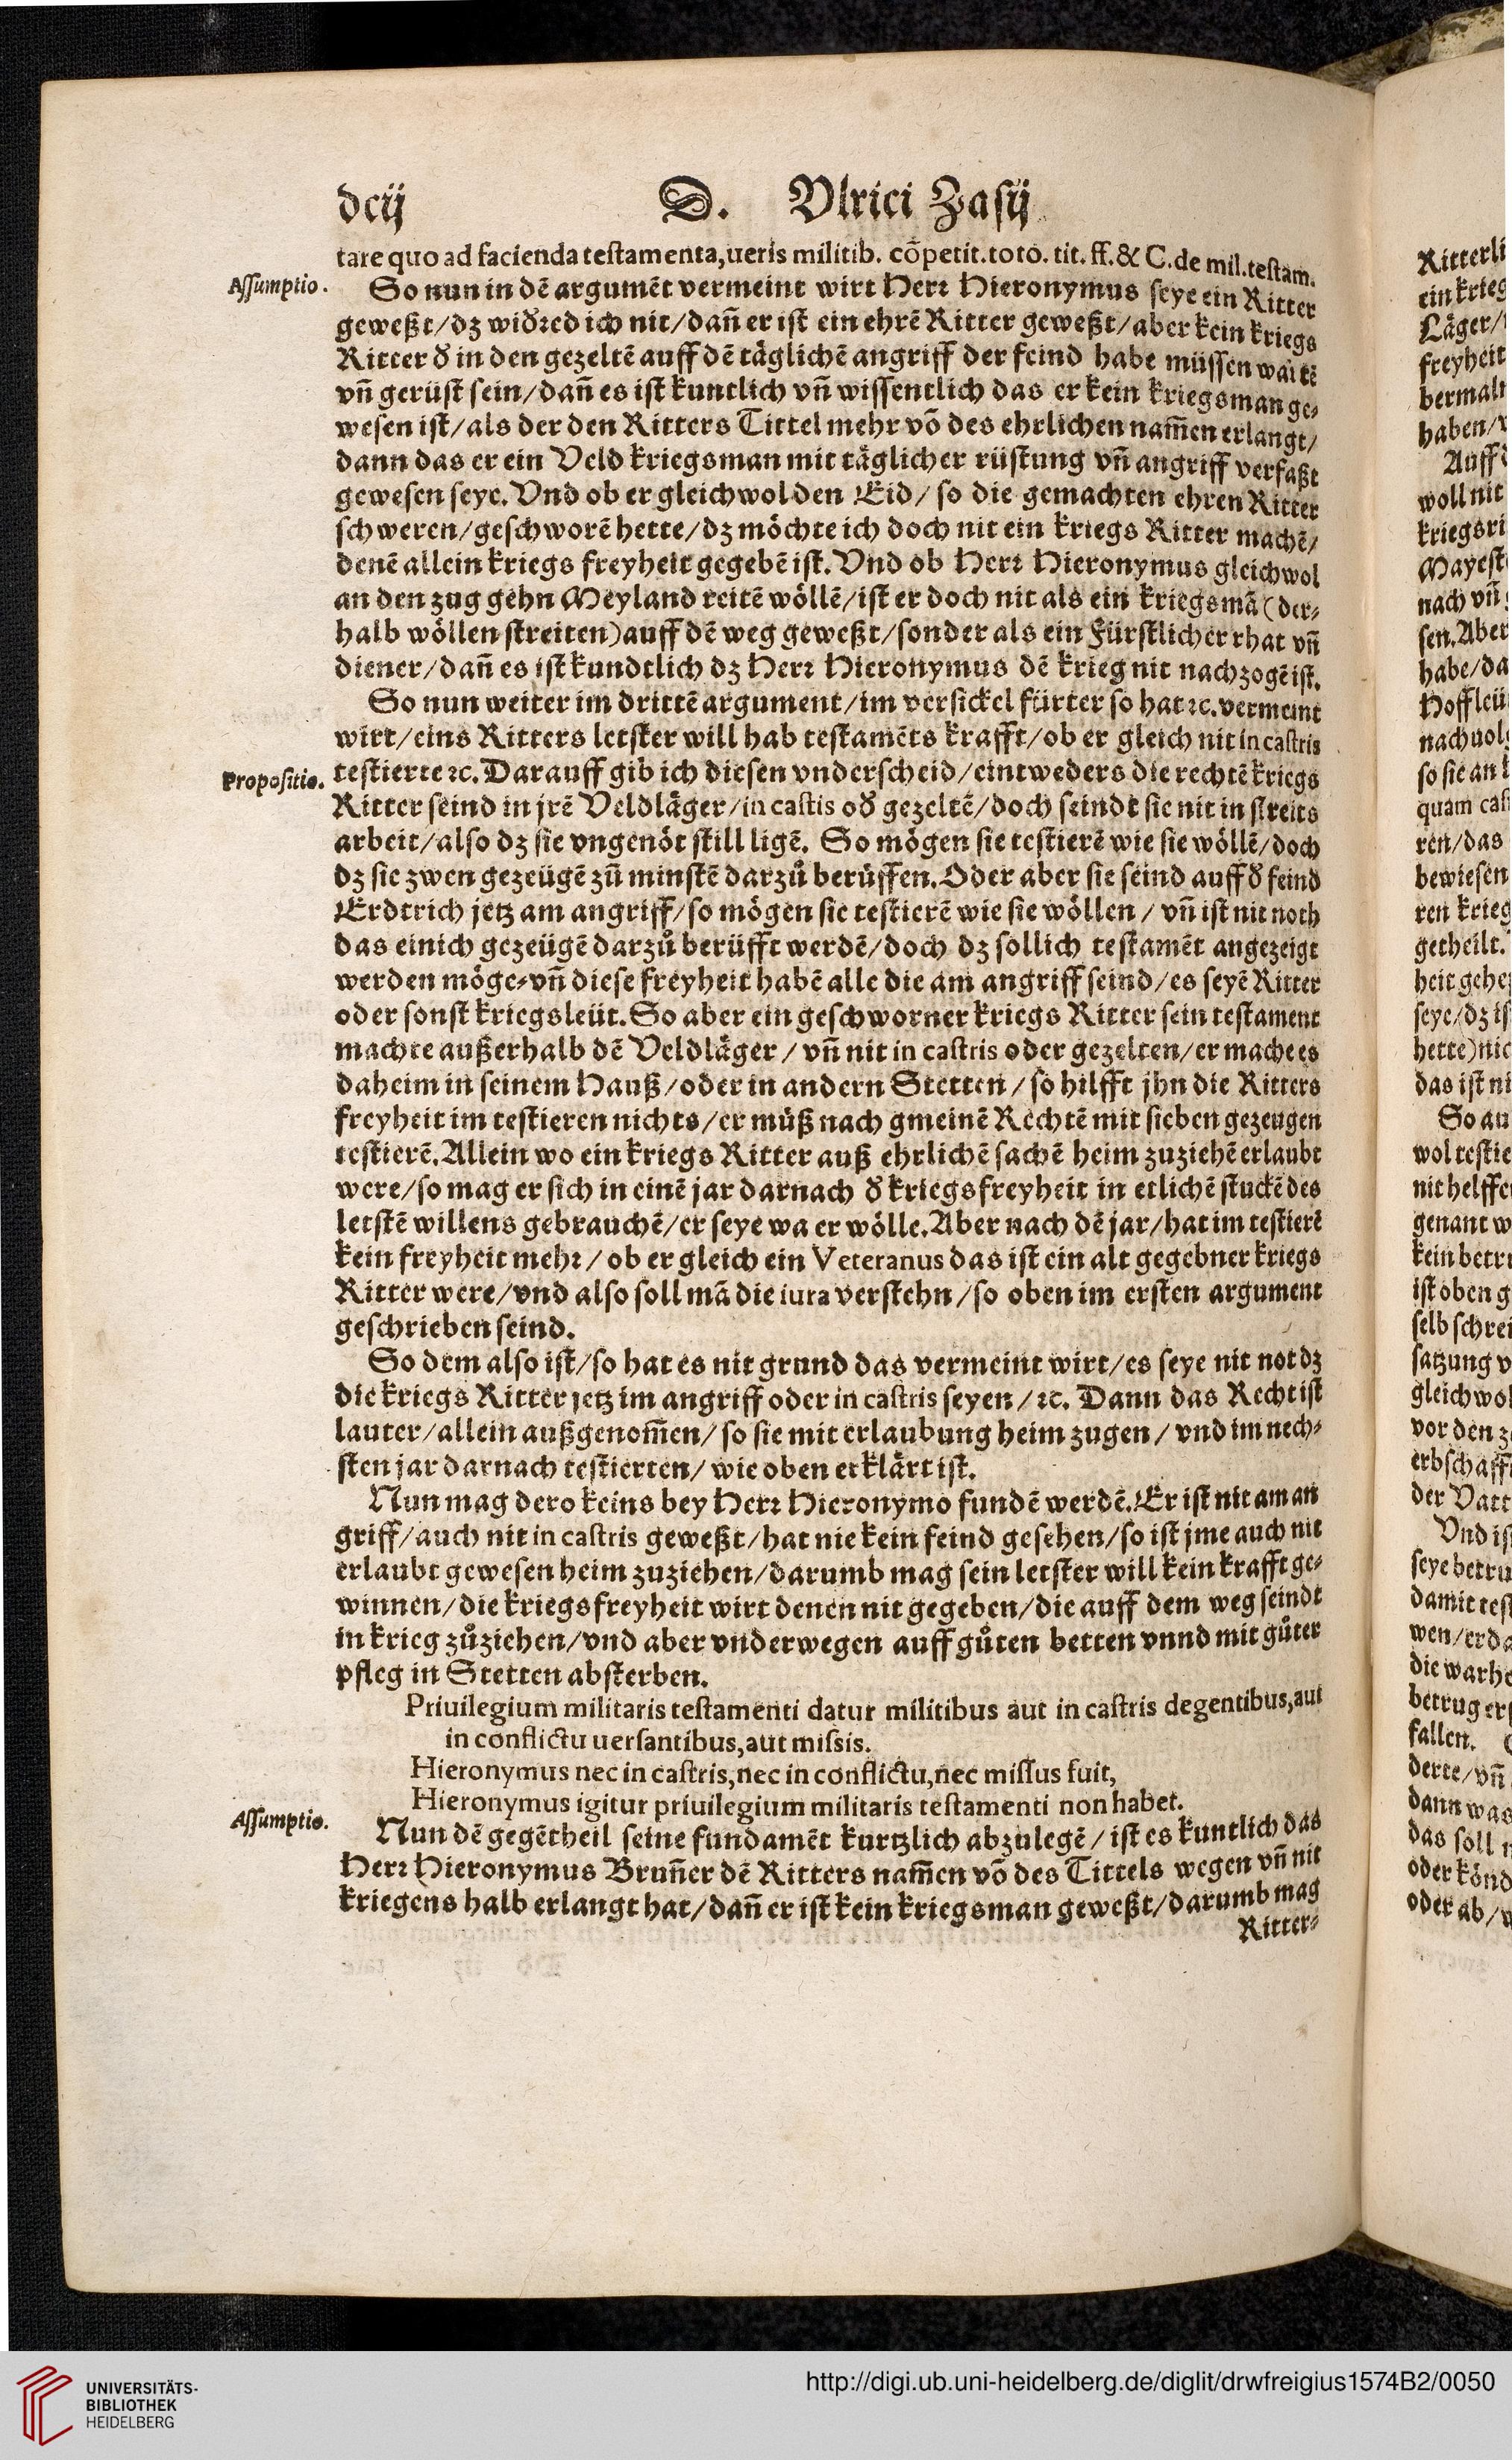 dcij D. Vlrici Zasij
tare quo ad facienda testamenta, ueris militib. cõpetit. toto. tit. ff. & C. de mil. testam.
Assumptio.
So nun in dẽ argumẽt vermeint wirt Herr Hieronymus seye ein Ritter
geweßt/dz widred ich nit/dañ er ist ein ehrẽ Ritter geweßt/aber kein kriegs
Ritter d̕ in den gezeltẽ auff dẽ täglichẽ angriff der feind habe müssen wartẽ
vñ gerüst sein/dañ es ist kuntlich vñ wissentlich das er kein kriegsman ge-
wesen ist/als der den Ritters Tittel mehr võ des ehrlichen nam̃en erlangt/
dann das er ein Veld kriegsman mit täglicher rüstung vñ angriff verfaßt
gewesen seye. Vnd ob er gleichwol den Eid/so die gemachten ehren Ritter
schweren/geschworẽ hette/dz möchte ich doch nit ein kriegs Ritter machẽ/
denẽ allein kriegs freyheit gegebẽ ist. Vnd ob Herr Hieronymus gleichwol
an den zug gehn Meyland reitẽ wöllẽ/ist er doch nit als ein kriegsmã (der-
halb wöllen streiten) auff dẽ weg geweßt/sonder als ein Fürstlicher rhat vñ
diener/dañ es ist kundtlich dz Herr Hieronymus dẽ krieg nit nachzogẽ ist.
So nun weiter im drittẽ argument/im versickel fürter so hat ꝛc. vermeint
wirt/eins Ritters letster will hab testamẽts krafft/ob er gleich nit in castris
Propositio.
testierte ꝛc. Darauff gib ich diesen vnderscheid/eintweders die rechtẽ kriegs
Ritter seind in jrẽ Veldläger/in castis od̕ gezeltẽ/doch seindt sie nit in streits
arbeit/also dz sie vngenöt still ligẽ. So mögen sie testierẽ wie sie wöllẽ/doch
dz sie zwen gezeügẽ zů minstẽ darzů berüffen. Oder aber sie seind auff d̕ feind
Erdtrich jetz am angriff/so mögen sie testierẽ wie sie wöllen/vñ ist nit noth
das einich gezeügẽ darzů berüfft werdẽ/doch dz sollich testamẽt angezeigt
werden möge-vñ diese freyheit habẽ alle die am angriff seind/es seyẽ Ritter
oder sonst kriegsleüt. So aber ein geschworner kriegs Ritter sein testament
machte außerhalb dẽ Veldläger/vñ nit in castris oder gezelten/er mache es
daheim in seinem Hauß/oder in andern Stetten/so hilfft jhn die Ritters
freyheit im testieren nichts/er müß nach gmeinẽ Rechtẽ mit sieben gezeugen
testierẽ. Allein wo ein kriegs Ritter auß ehrlichẽ sachẽ heim zuziehẽ erlaubt
were/so mag er sich in einẽ jar darnach d̕ kriegsfreyheit in etlichẽ stuckẽ des
letstẽ willens gebrauchẽ/er seye wa er wölle. Aber nach dẽ jar/hat im testierẽ
kein freyheit mehr/ob er gleich ein Veteranus das ist ein alt gegebner kriegs
Ritter were/vnd also soll mã die iura verstehn/so oben im ersten argument
geschrieben seind.
So dem also ist/so hat es nit grund das vermeint wirt/es seye nit not dz
die kriegs Ritter jetz im angriff oder in castris seyen/ꝛc. Dann das Recht ist
lauter/allein außgenom̃en/so sie mit erlaubung heim zugen/vnd im nech-
sten jar darnach testierten/wie oben erklärt ist.
Nun mag dero keins bey Herr Hieronymo fundẽ werdẽ. Er ist nit am an
griff/auch nit in castris geweßt/hat nie kein feind gesehen/so ist jme auch nit
erlaubt gewesen heim zuziehen/darumb mag sein letster will kein krafft ge-
winnen/die kriegsfreyheit wirt denen nit gegeben/die auff dem weg seindt
in krieg zůziehen/vnd aber vnderwegen auff gůten betten vnnd mit gůter
pfleg in Stetten absterben.
Priuilegium militaris testamenti datur militibus aut in castris degentibus, aut
in conflictu uersantibus, aut missis.
Hieronymus nec in castris, nec in conflictu, nec missus fuit,
Hieronymus igitur priuilegium militaris testamenti non habet.
Assumptio.
Nun dẽ gegẽtheil seine fundamẽt kurtzlich abzulegẽ/ist es kuntlich das
Herr Hieronymus Bruñer dẽ Ritters nam̃en võ des Tittels wegen vñ nit
kriegens halb erlangt hat/dañ er ist kein kriegsman geweßt/darumb mag
Ritter-
UNIVERSITÄTS-
BIBLIOTHEK
HEIDELBERG
http://digi.ub.uni-heidelberg.de/diglit/drwfreigius1574B2/0050